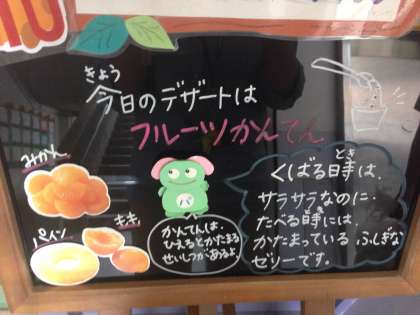 きょう
今日のデザートは
フルーツかんてん
みかん
パイン
もも
かんてんは、
ひえるとかたまる
せいしつがあるよ。
とき
くばる時は、
サラサラなのに・
たべる時には、
かたまっている ふしぎな
ゼリーです。